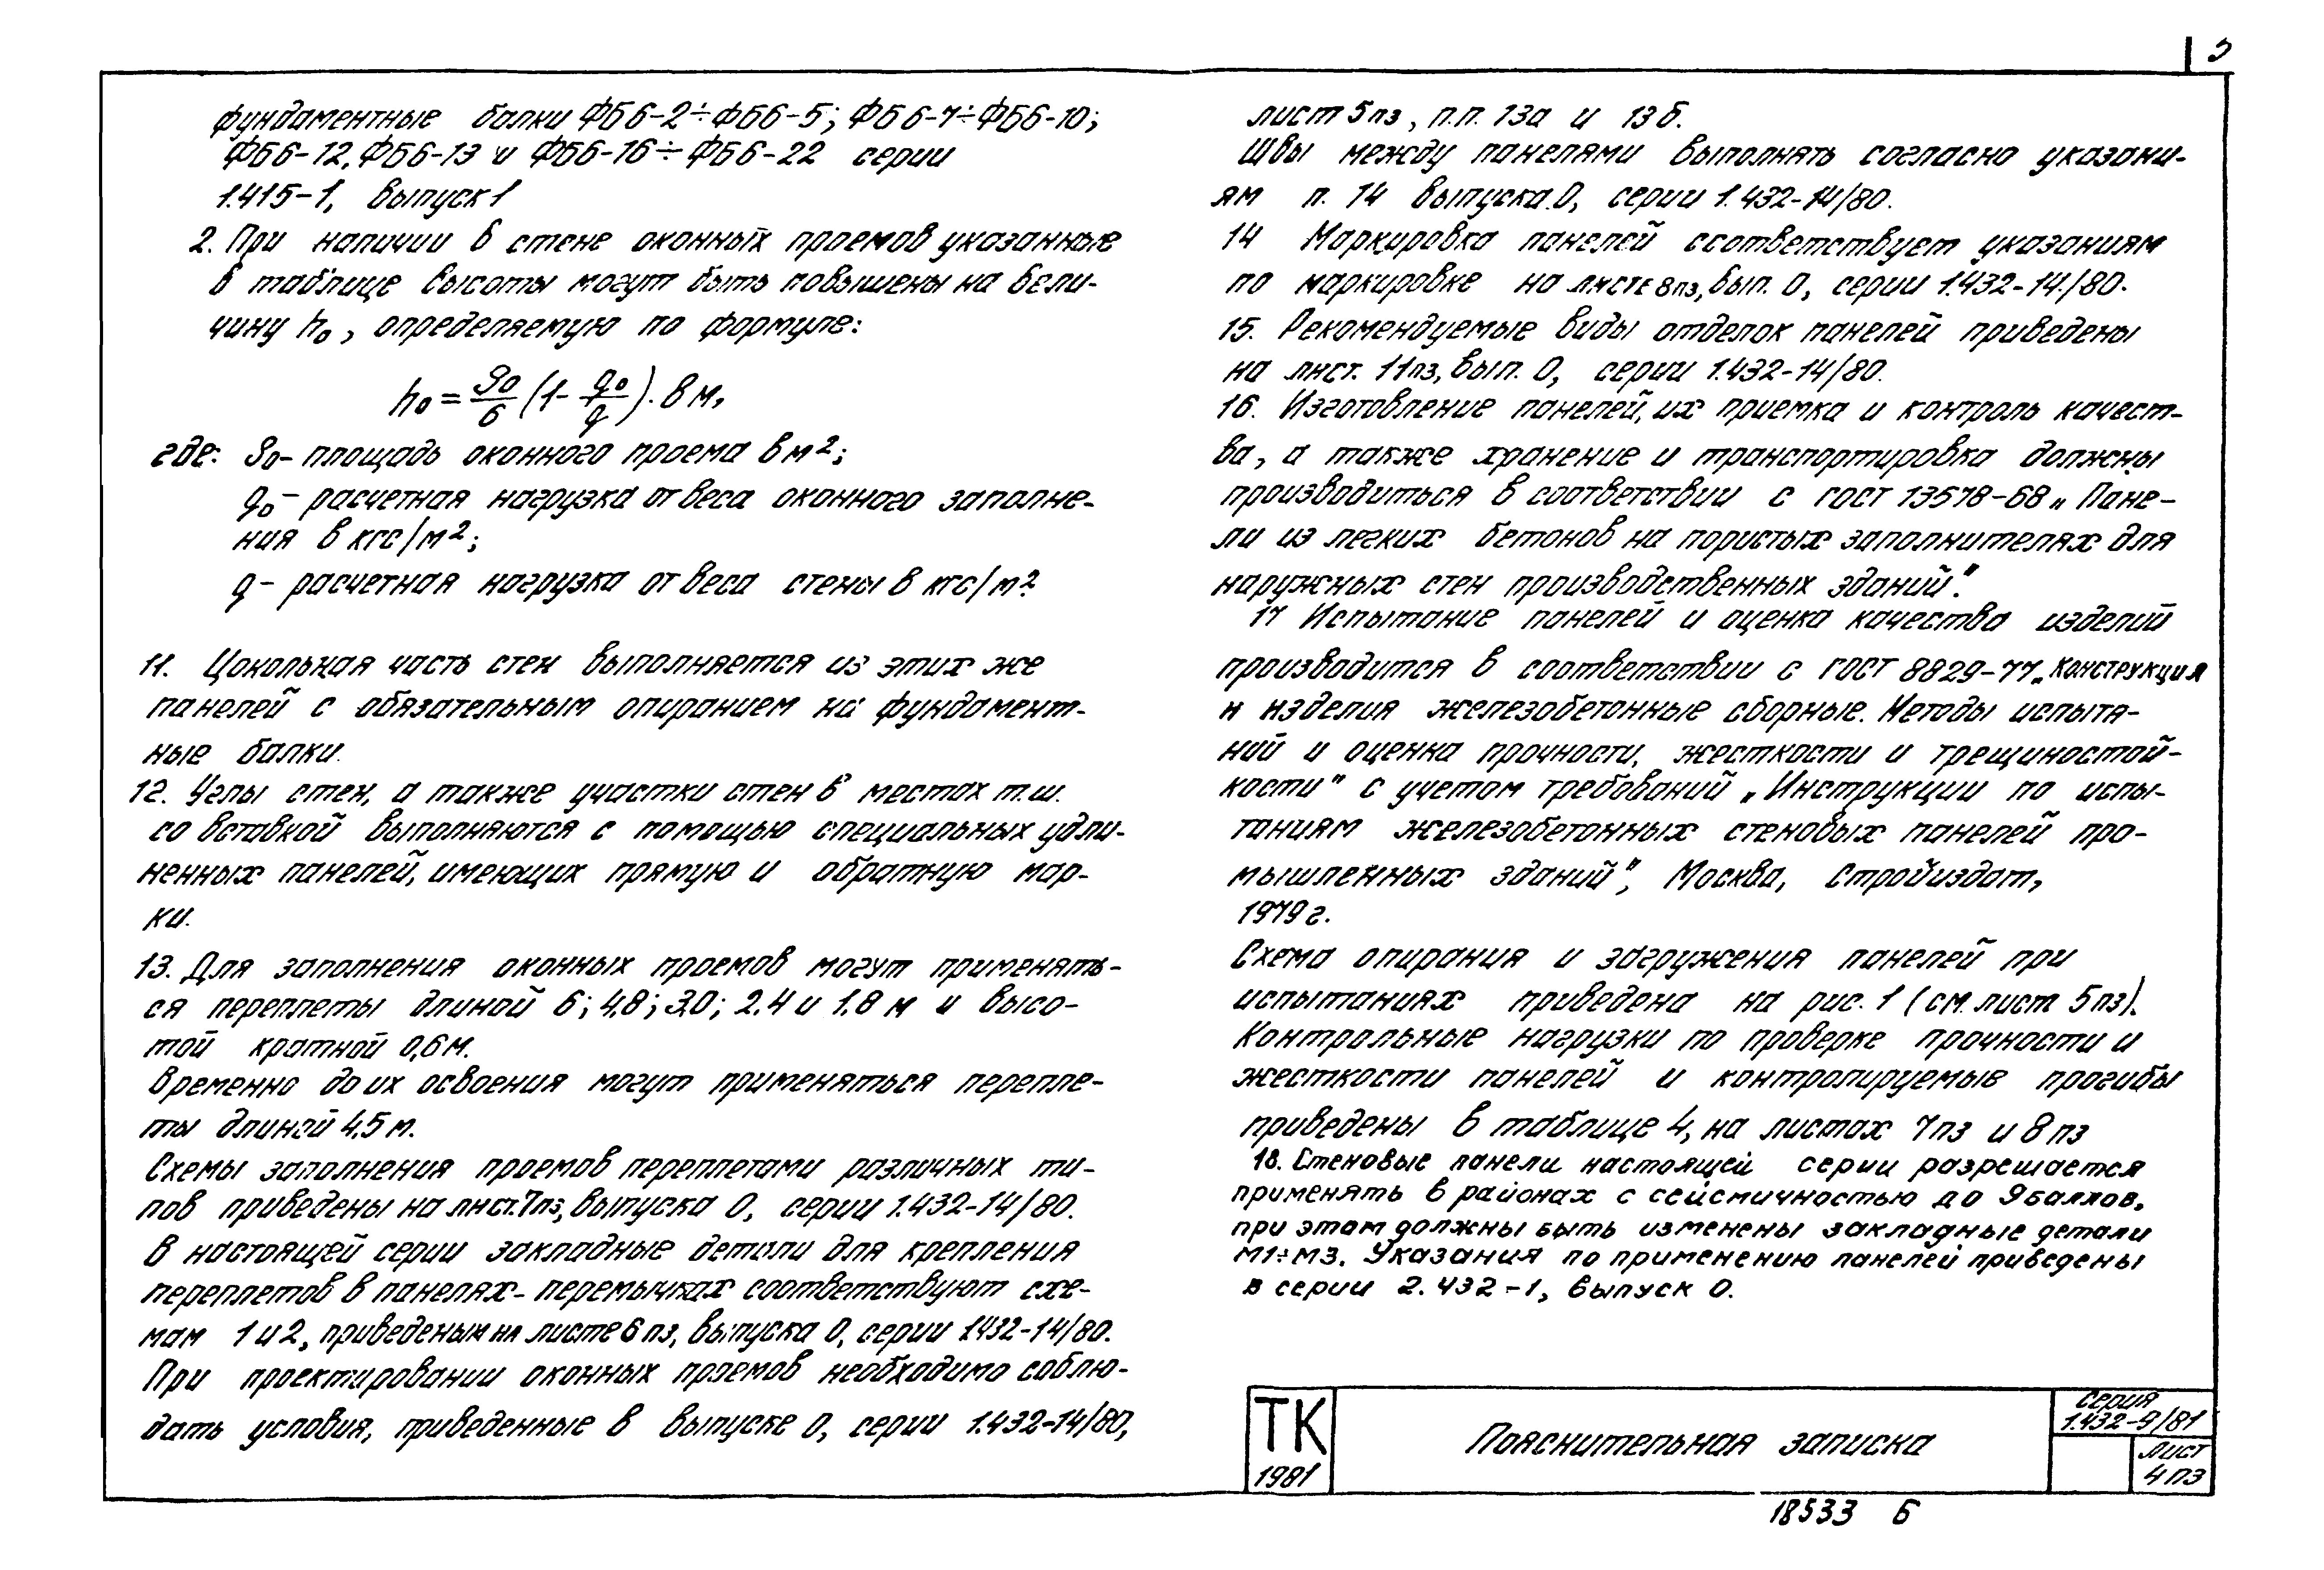 5
фундаментные балки ФБ6-2÷ФБ6-5; ФБ6-7÷ФБ6-10;
ФБ6-12, ФБ6-13 и ФБ6-16÷ФБ6-22 серии
1.415-1, выпуск 1
2. При наличии в стене оконных проемов указанные
в таблице высоты могут быть повышены на вели-
чину h₀, определяемую по формуле:
h₀ = S₀/6 (1 - q₀/q) · в м,
где: S₀ - площадь оконного проема в м²;
q₀ - расчетная нагрузка от веса оконного заполне-
ния в кгс/м²;
q - расчетная нагрузка от веса стены в кгс/м².
11. Цокольная часть стен выполняется из этих же
панелей с обязательным опиранием на фундамент-
ные балки.
12. Углы стен, а также участки стен в местах т.ш.
со вставкой выполняются с помощью специальных удли-
ненных панелей, имеющих прямую и обратную мар-
ки.
13. Для заполнения оконных проемов могут применять-
ся переплеты длиной 6; 4,8; 3,0; 2.4 и 1.8 м и высо-
той кратной 0,6 м.
Временно до их освоения могут применяться перепле-
ты длиной 4,5 м.
Схемы заполнения проемов переплетами различных ти-
пов приведены на лист. 7пз, выпуска 0, серии 1.432-14/80.
В настоящей серии закладные детали для крепления
переплетов в панелях-перемычках соответствуют схе-
мам 1 и 2, приведеным на листе 6 пз, выпуска 0, серии 1.432-14/80.
При проектировании оконных проемов необходимо соблю-
дать условия, приведенные в выпуске 0, серии 1.432-14/80,
лист 5пз, п.п. 13а и 13б.
Швы между панелями выполнять согласно указани-
ям п. 14 выпуска 0, серии 1.432-14/80.
14 Маркировка панелей соответствует указаниям
по маркировке на листе 8пз, вып. 0, серии 1.432-14/80.
15. Рекомендуемые виды отделок панелей приведены
на лист. 11пз, вып. 0, серии 1.432-14/80.
16. Изготовление панелей, их приемка и контроль качест-
ва, а также хранение и транспортировка должны
производиться в соответствии с ГОСТ 13578-68 „Пане-
ли из легких бетонов на пористых заполнителях для
наружных стен производственных зданий".
17 Испытание панелей и оценка качества изделий
производится в соответствии с ГОСТ 8829-77 „Конструкция
и изделия железобетонные сборные. Методы испыта-
ний и оценка прочности, жесткости и трещиностой-
кости" с учетом требований „Инструкции по испы-
таниям железобетонных стеновых панелей про-
мышленных зданий", Москва, Стройиздат,
1979 г.
Схема опирания и загружения панелей при
испытаниях приведена на рис. 1 (см. лист 5пз).
Контрольные нагрузки по проверке прочности и
жесткости панелей и контролируемые прогибы
приведены в таблице 4, на листах 7пз и 8пз
18. Стеновые панели настоящей серии разрешается
применять в районах с сейсмичностью до 9 баллов,
при этом должны быть изменены закладные детали
М1÷М3. Указания по применению панелей приведены
в серии 2.432-1, выпуск 0.
ТК
1981
Пояснительная записка
серия
1.432-9/81
лист
4пз
18533 6